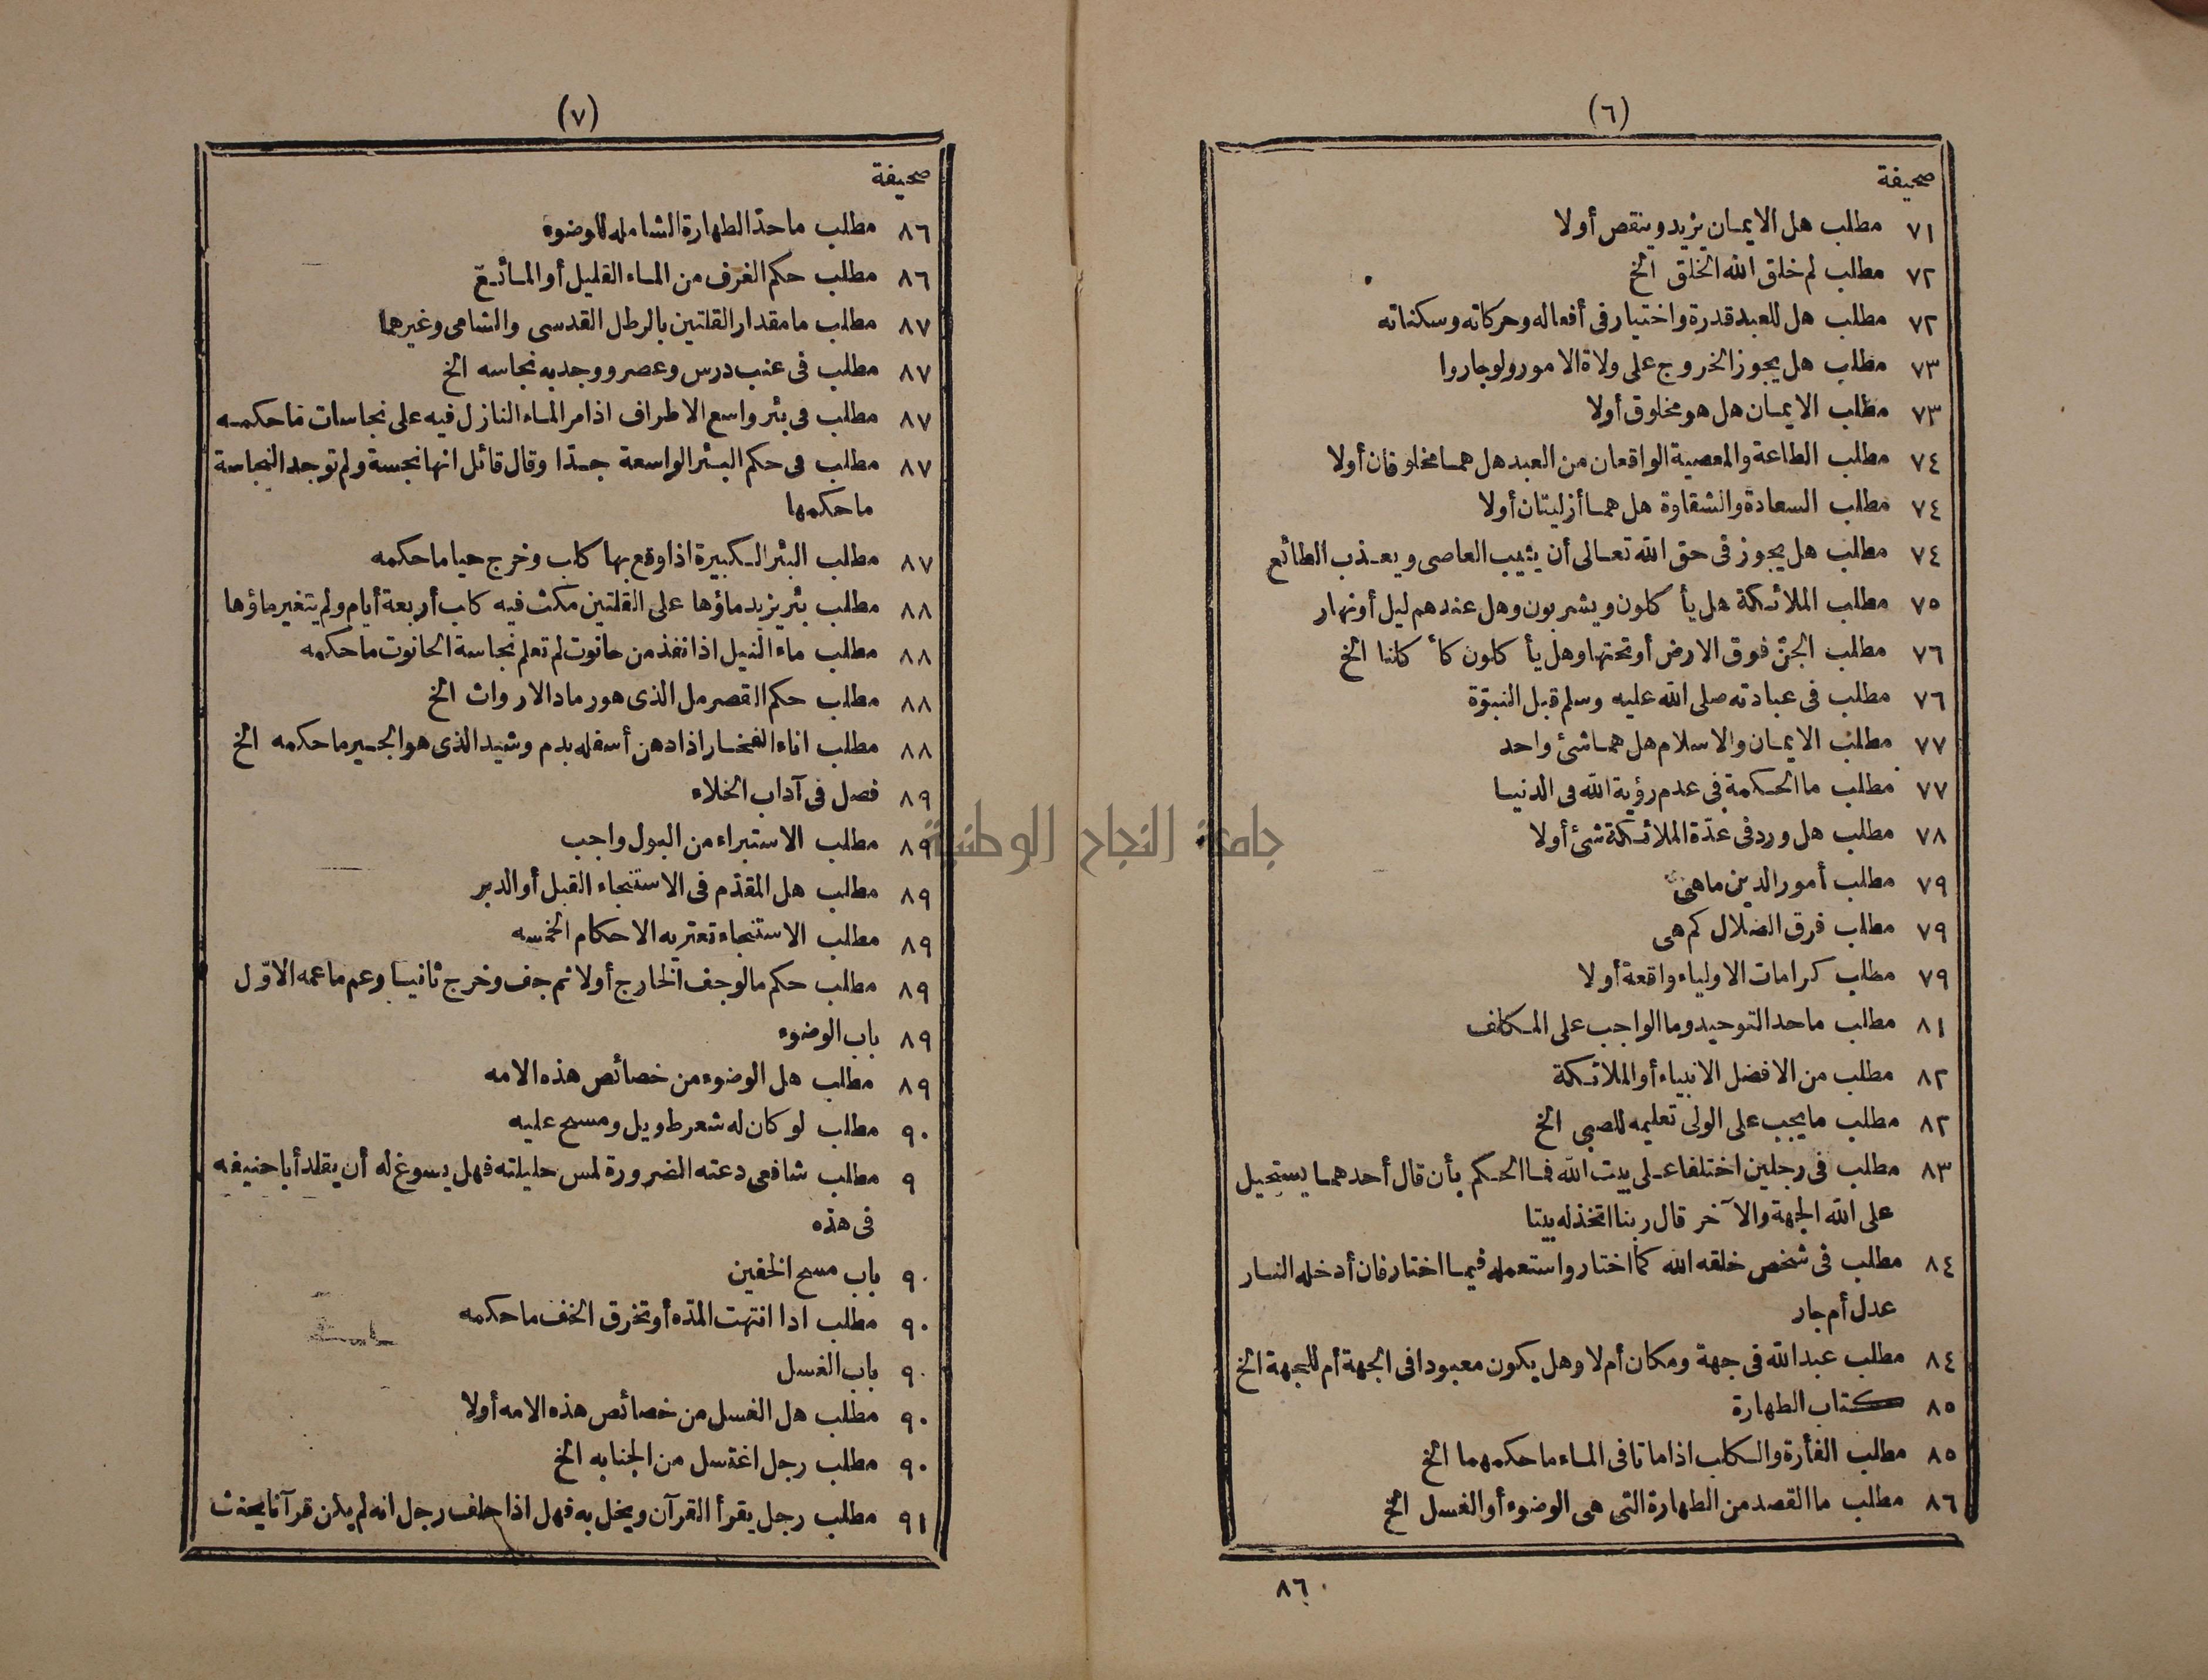 (٦)
صحيفة
٧١ مطلب هل الايمان يزيد وينقص أولا
٧٢ مطلب لم خلق الله الخلق الخ
٧٢ مطلب هل للعبد قدرة واختيار فى أفعاله وحركاته وسكناته
٧٣ مطلب هل يجوز الخروج على ولاة الامور ولو جاروا
٧٣ مطلب الايمان هل هو مخلوق أولا
٧٤ مطلب الطاعة والمعصية الواقعان من العبد هل هما مخلوقان أولا
٧٤ مطلب السعادة والشقاوة هل هما أزليتان أولا
٧٤ مطلب هل يجوز فى حق الله تعالى أن يثيب العاصى ويعذب الطائع
٧٥ مطلب الملائكة هل يأكلون ويشربون وهل عندهم ليل أونهار
٧٦ مطلب الجنّ فوق الارض أوتحتها وهل يأكلون كأكلنا الخ
٧٦ مطلب فى عبادته صلى الله عليه وسلم قبل النبوّة
٧٧ مطلب الايمان والاسلام هل هما شئ واحد
٧٧ مطلب ما الحكمة فى عدم رؤية الله فى الدنيا
٧٨ مطلب هل ورد فى عدّة الملائكة شئ أولا
٧٩ مطلب أمور الدين ماهى
٧٩ مطلب فرق الضلال كم هى
٧٩ مطلب كرامات الاولياء واقعة أولا
٨١ مطلب ماحد التوحيد وما الواجب على المكلف
٨٢ مطلب من الافضل الانبياء أو الملائكة
٨٢ مطلب مايجب على الولى تعليمه للصبى الخ
٨٣ مطلب فى رجلين اختلفا على بيت الله فما الحكم بأن قال أحدهما يستحيل
على الله الجهة والآخر قال ربنا اتخذله بيتا
٨٤ مطلب فى شخص خلقه الله كما اختار واستعمله فيما اختار فان أدخله النار
عدل أم جار
٨٤ مطلب عبد الله فى جهة ومكان أم لا وهل يكون معبودا فى الجهة أم للجهة الخ
٨٥ كتاب الطهارة
٨٥ مطلب الفأرة والكلب اذا ماتا فى الماء ما حكمهما الخ
٨٦ مطلب ما القصد من الطهارة التى هى الوضوء أو الغسل الخ
٨٦
(٧)
صحيفة
٨٦ مطلب ماحدّ الطهارة الشامله للوضوء
٨٦ مطلب حكم الغرف من الماء القليل أو المائع
٨٧ مطلب مامقدار القلتين بالرطل القدسى والشامى وغيرهما
٨٧ مطلب فى عنب درس وعصر ووجد به نجاسه الخ
٨٧ مطلب فى بئر واسع الاطراف اذا مر الماء النازل فيه على نجاسات فاحكمه
٨٧ مطلب فى حكم البئر الواسعة جدّا وقال قائل انها نجسة ولم توجد النجاسة
ماحكمها
٨٧ مطلب البئر الكبيرة اذا وقع بها كلب وخرج حيا ماحكمه
٨٨ مطلب بئر يزيد ماؤها على القلتين مكث فيه كلب أربعة أيام ولم يتغير ماؤها
٨٨ مطلب ماء النيل اذا نفذ من حانوت لم تعلم نجاسة الحانوت ماحكمه
٨٨ مطلب حكم القصرمل الذى هو رماد الاروات الخ
٨٨ مطلب اناء الفخار اذا دهن أسفله بدم وشيد الذى هو الجير ماحكمه الخ
٨٩ فصل فى آداب الخلاء
٨٩ مطلب الاستبراء من البول واجب
٨٩ مطلب هل المقدّم فى الاستنجاء القبل أو الدبر
٨٩ مطلب الاستنجاء تعتريه الاحكام الخمسه
٨٩ مطلب حكم مالوجف الخارج أولا ثم جف وخرج ثانيا وعم ماعمه الاوّل
٨٩ باب الوضوء
٨٩ مطلب هل الوضوء من خصائص هذه الامه
٩٠ مطلب لو كان له شعر طويل ومسح عليه
٩ مطلب شافعى دعته الضرورة لمس حليلته فهل يسوغ له أن يقلد أباحنيفه
فى هذه
٩٠ باب مسح الخفين
٩٠ مطلب اذا انتهت المدّه أو تخرق الخف ماحكمه
٩٠ باب الغسل
٩٠ مطلب هل الغسل من خصائص هذه الامه أولا
٩٠ مطلب رجل اغتسل من الجنابه الخ
٩١ مطلب رجل يقرأ القرآن ويخل به فهل اذا حلف رجل انه لم يكن قرآنا يحنث
جامعة النجاح الوطنية